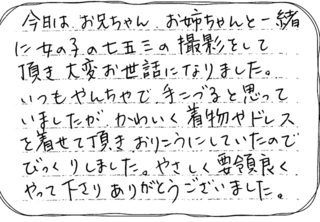 今日は、お兄ちゃん お姉ちゃんと一緒
に女の子の七五三の撮影をして
頂き大変お世話になりました。
いつもやんちゃで、手こづると思って
いましたが、かわいく着物やドレス
を着せて頂きおりこうにしていたので
びっくりしました。やさしく要領良く
やって下さりありがとうございました。